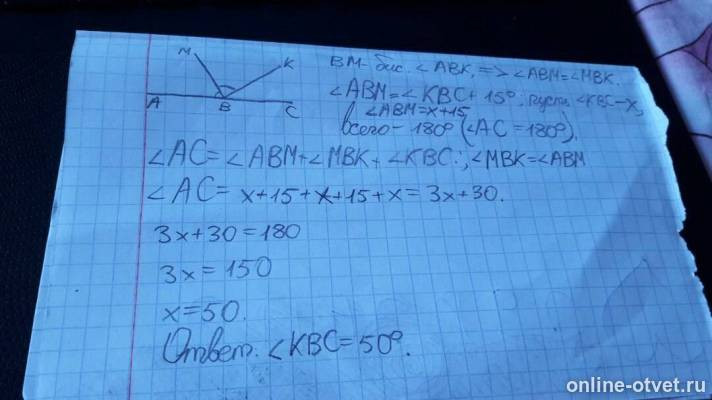 M
K
A
B
C
BM- бис. ∠ABK, => ∠ABM=∠MBK.
∠ABM=∠KBC+15°. пусть ∠KBC-x,
∠ABM=x+15
всего- 180° (∠AC=180°).
∠AC=∠ABM+∠MBK+∠KBC., ∠MBK=∠ABM
∠AC= x+15+x+15+x=3x+30.
3x+30=180
3x=150
x=50.
Ответ. ∠KBC=50°.
online-otvet.ru